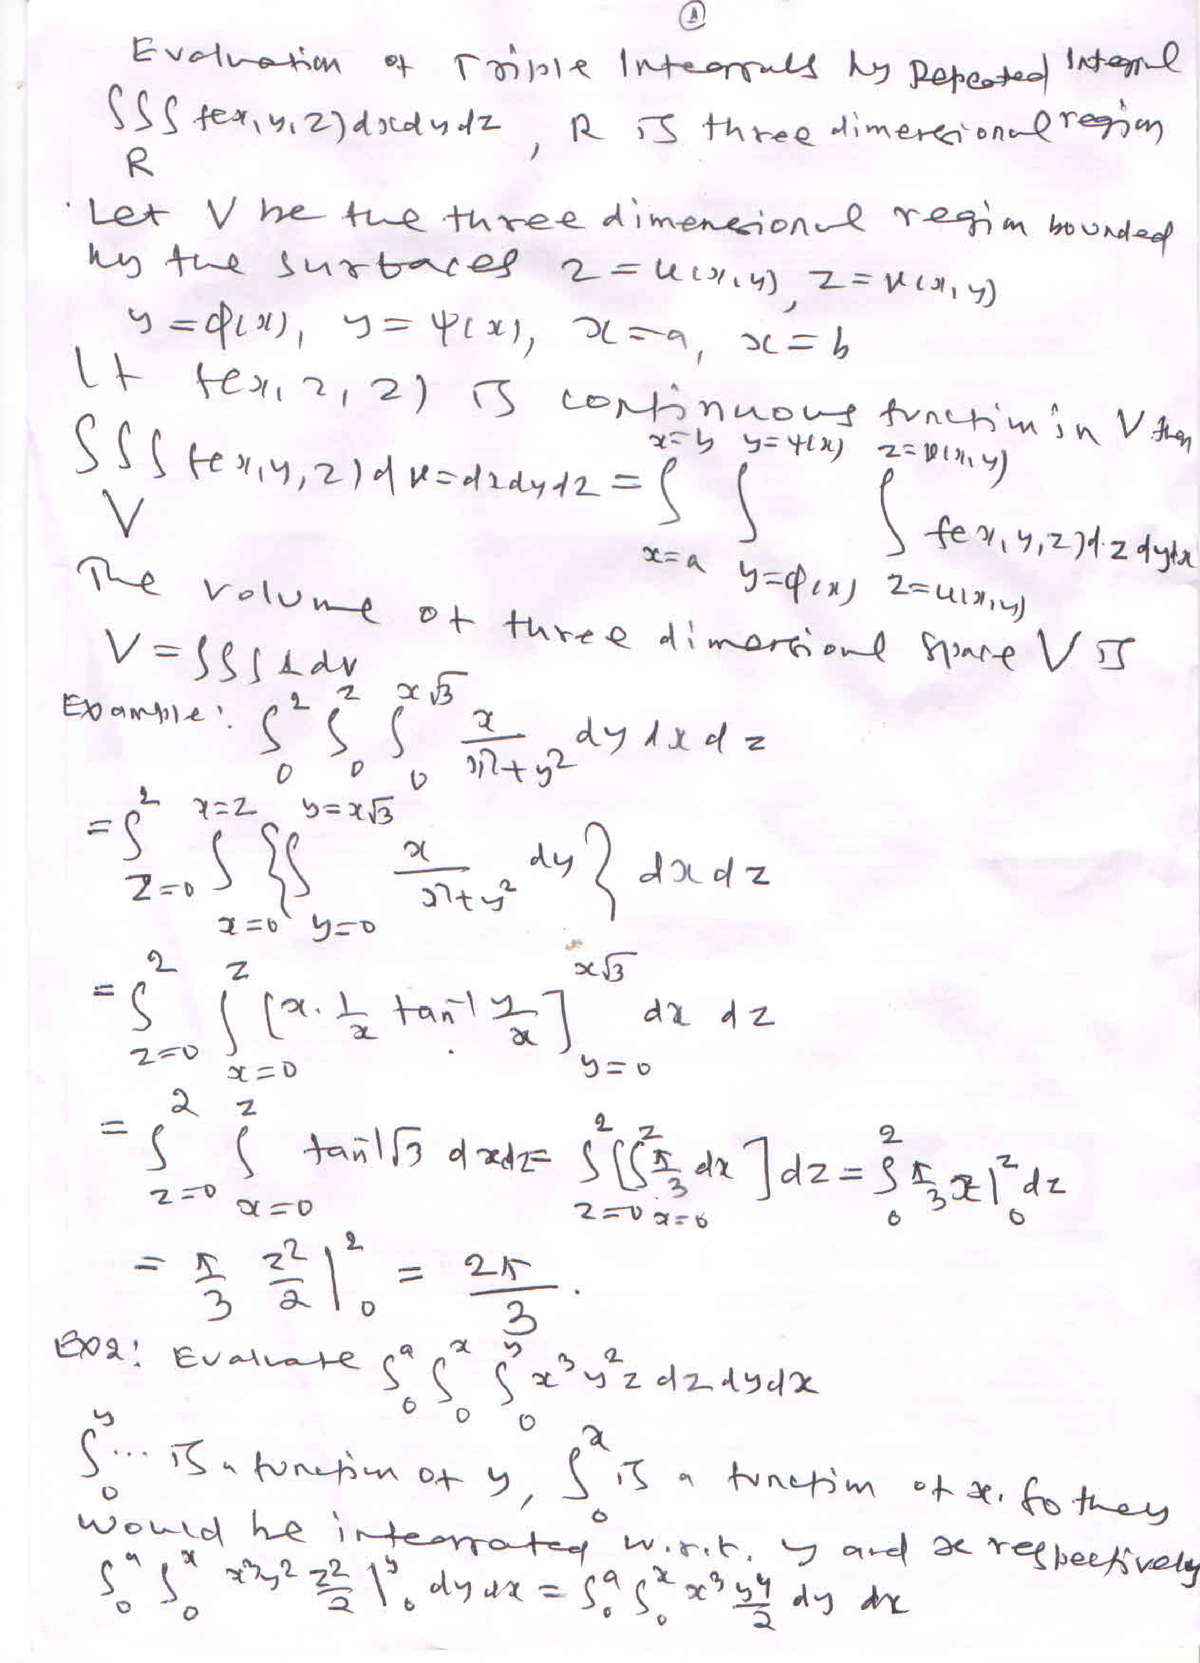 1
Evaluation of Triple Integrals by Repeated Integral
∫∫∫ f(x,y,z)dxdydz, R is three dimensional region
R
Let V be the three dimensional region bounded
by the surfaces z=u(x,y), z=v(x,y)
y=φ(x), y=ψ(x), x=a, x=b
If f(x,z,z) is continuous function in V then
x=b y=ψ(x) z=v(x,y)
∫∫∫ f(x,y,z)dv=dxdydz = ∫ ∫ ∫ f(x,y,z)dz dydx
V x=a y=φ(x) z=u(x,y)
The volume of three dimensional space V is
V=∫∫∫ 1 dv
Example: ∫₀² ∫₀ᶻ ∫₀^{x√3} x/(x²+y²) dy dx dz
= ∫_{z=0}^{2} ∫_{x=0}^{x=z} {∫_{y=0}^{y=x√3} x/(x²+y²) dy} dx dz
= ∫_{z=0}^{2} ∫_{x=0}^{z} [x·1/x tan⁻¹ y/x]_{y=0}^{x√3} dx dz
= ∫_{z=0}^{2} ∫_{x=0}^{z} tan⁻¹√3 dxdz = ∫_{z=0}^{2} [∫_{x=0}^{z} π/3 dx] dz = ∫₀² π/3 x|₀ᶻ dz
= π/3 z²/2 |₀² = 2π/3.
Ex2: Evaluate ∫₀ᵃ ∫₀ˣ ∫₀ʸ x³y²z dz dy dx
∫₀ʸ ... is a function of y, ∫₀ˣ is a function of x. So they
would be integrated w.r.t. y and x respectively
∫₀ᵃ ∫₀ˣ x³y² z²/2 |₀ʸ dy dx = ∫₀ᵃ ∫₀ˣ x³ y⁴/2 dy dx